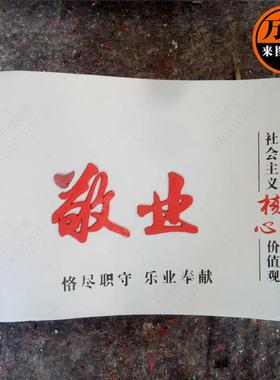 万
来图
敬业
恪尽职守 乐业奉献
社会主义
核心
价值观